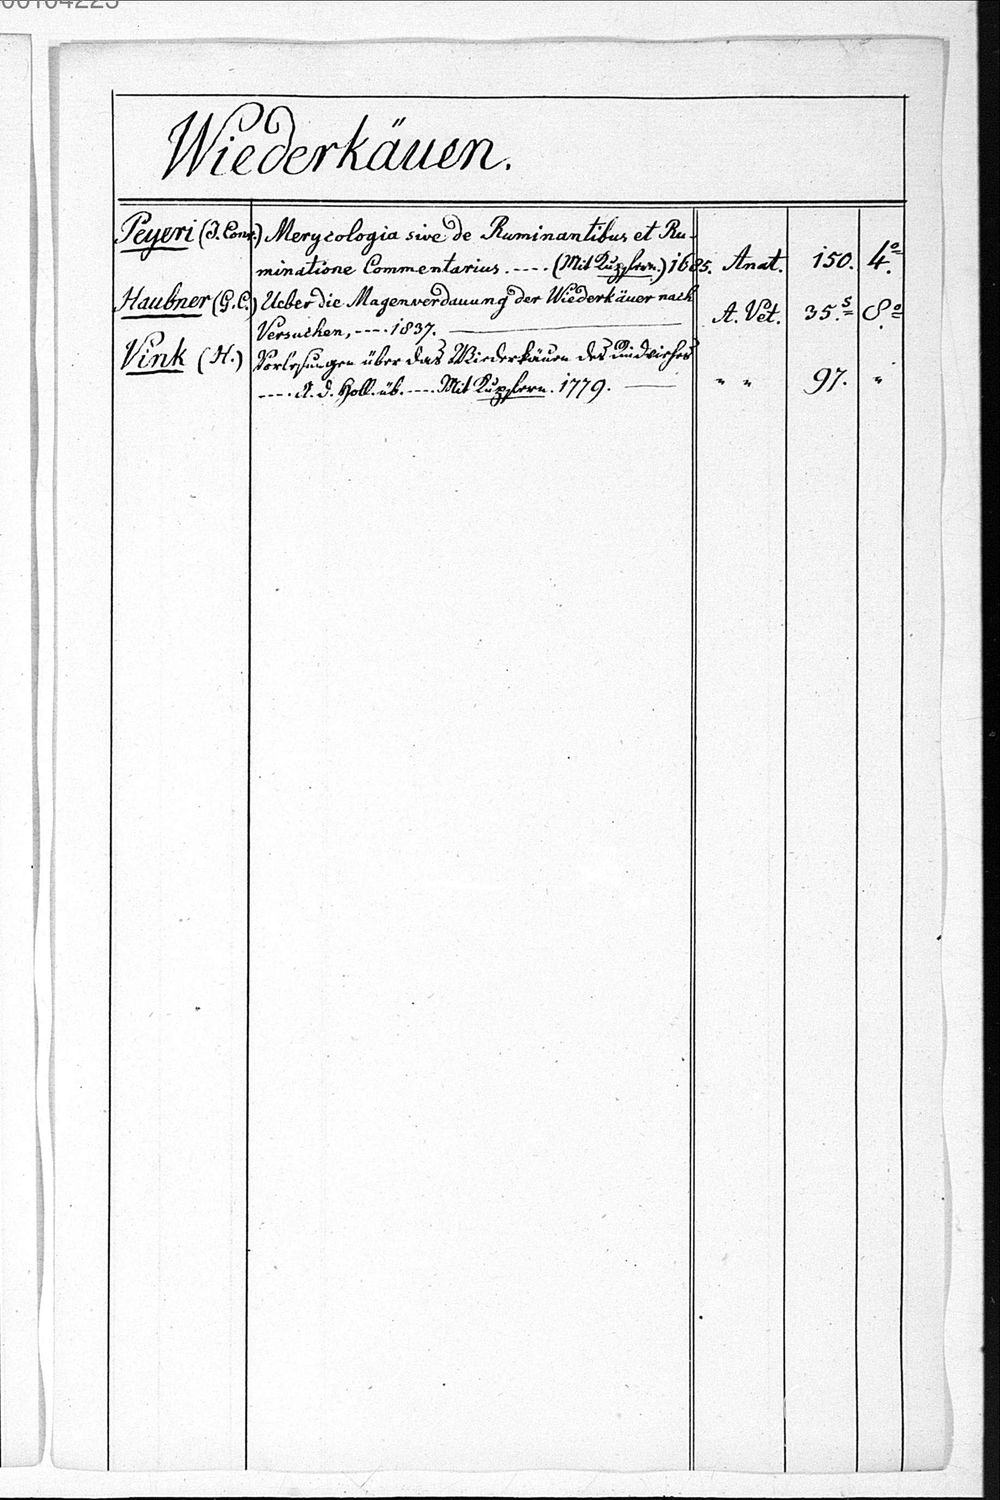 00104223
Wiederkäuen.
Peyeri (J. Conr.) Merycologia sive de Ruminantibus et Ru-
minatione Commentarius. ---- (Mit Kupfern.) 1685. Anat. 150. 4.º
Haubner (G. C.) Ueber die Magenverdauung der Wiederkäuer nach
Versuchen, ---- 1837. A. Vet. 35.s 8.º
Vink (H.) Vorlesungen über das Wiederkäuen des Rindviehes
---- A. d. Holl. üb. ---- Mit Kupfern. 1779. " " 97. "